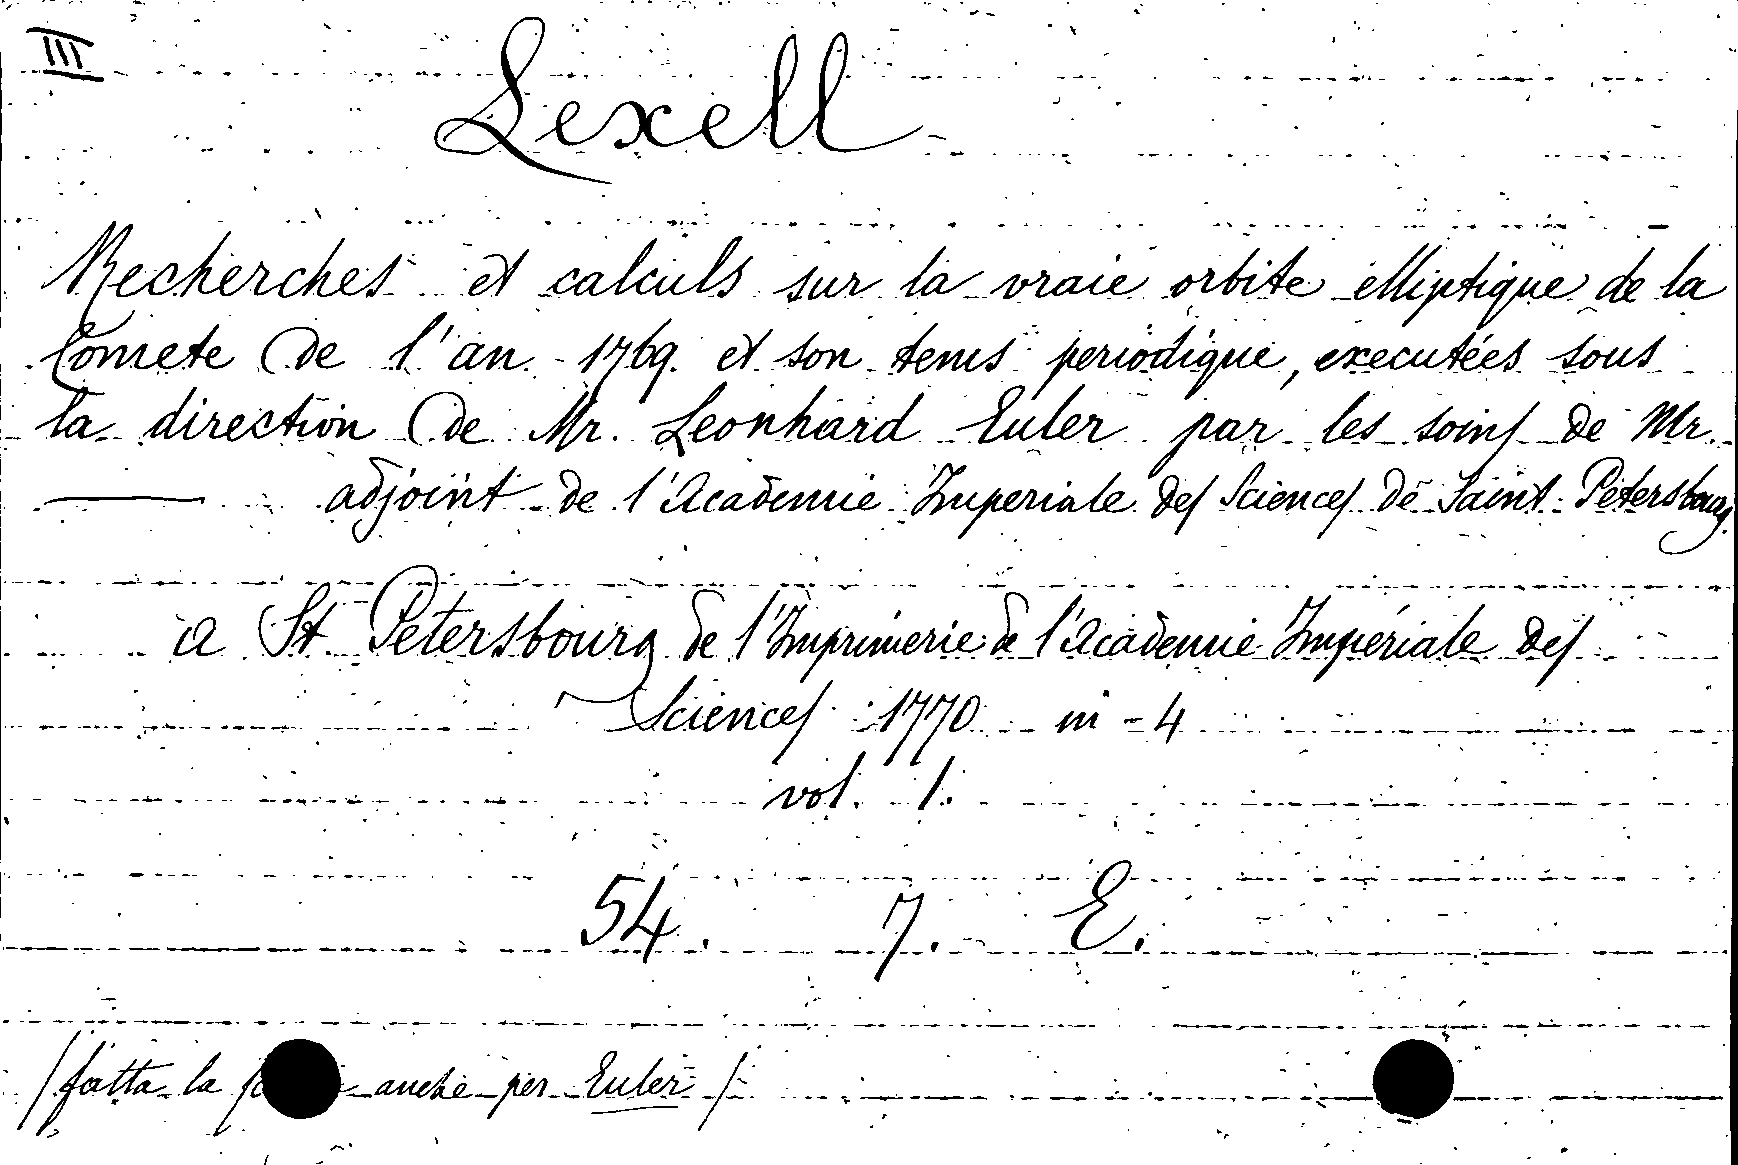 III
Lexell
Recherches et calculs sur la vraie orbite elliptique de la
Comete de l'an 1769. et son tems periodique, executées sous
la direction de Mr. Leonhard Euler par les soins de Mr.
——— adjoint de l'Academie Imperiale des Sciences de Saint-Petersbourg.
a St. Petersbourg de l'Imprimerie de l'Academie Imperiale des
Sciences 1770 in-4
vol. 1.
54. 7. E.
/fatta la anche per Euler/